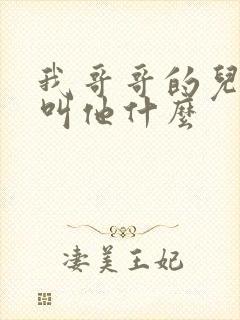 我哥哥的兒
叫他什麼
淒美王妃